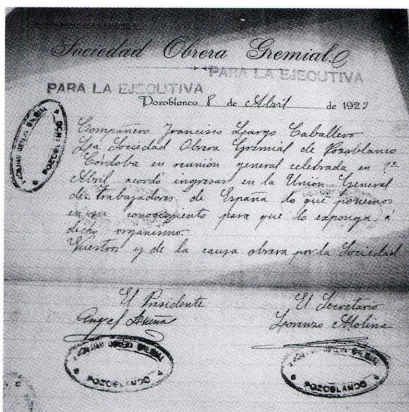 Sociedad Obrera Gremial
PARA LA EJECUTIVA
PARA LA EJECUTIVA
Pozoblanco 8 de Abril de 1927
Compañero Francisco Largo Caballero
La Sociedad Obrera Gremial de Pozoblanco
Córdoba en reunión general celebrada en 1º
Abril acordó ingresar en la Unión General
de trabajadores de España lo que ponemos
en su conocimiento para que lo exponga á
dicho organismo.
Vuestros y de la causa obrera por la Sociedad
El Presidente
Angel
El Secretario
Lorenzo Molina
SOCIEDAD OBRERA GREMIAL
POZOBLANCO
SOCIEDAD OBRERA GREMIAL
POZOBLANCO
SOCIEDAD OBRERA GREMIAL
POZOBLANCO